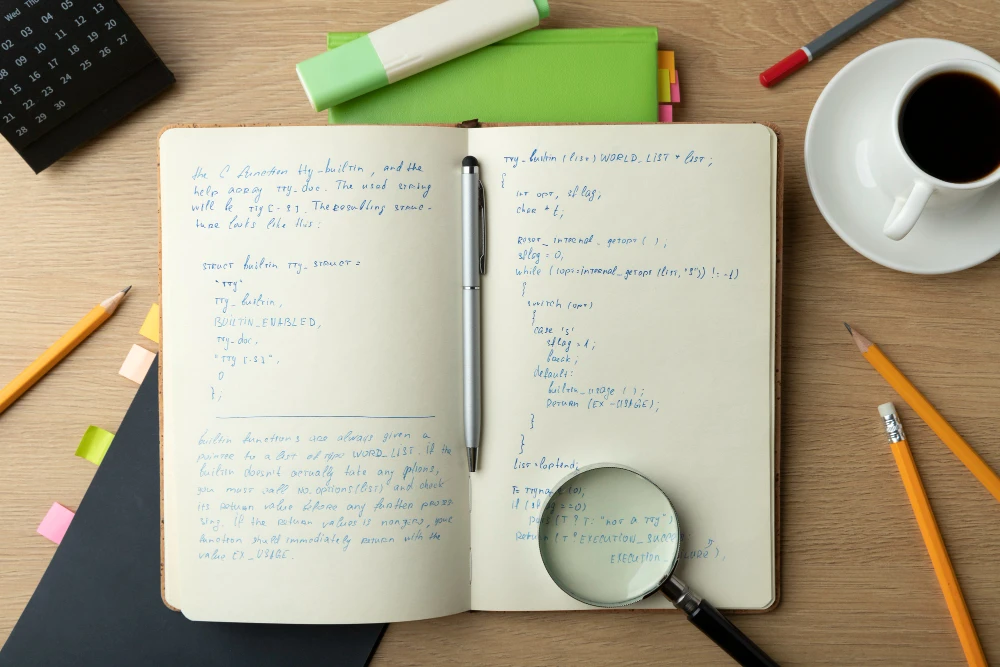 Wed Thu
02 03 04 05
09 10 11 12 13
08 15 16 17 18 19 20
14 22 23 24 25 26 27
21 29 30
28
the C function tty_builtin, and the
help array tty_doc. The used string
will be tty [-s]. The resulting struc-
ture looks like this:
struct builtin tty_struct =
"tty"
tty_builtin,
BUILTIN_ENABLED,
tty_doc,
"tty [-s]",
0
};
builtin functions are always given a
pointer to a list of type WORD_LIST. If the
builtin doesn't actually take any ptions,
you must call no_options(list) and check
its return value before any further proces-
sing. If the return values is nonzero, your
function should immediately return with the
value EX_USAGE.
tty_builtin (list) WORLD_LIST * list;
{
int opt, sflag,
char * t;
reset_internal_getopt ( );
sflag = 0,
while ((opt=internal_getopt (list, "s")) != -1)
{
switch (opt)
{
case 's'
sflag = 1;
break;
default:
builtin_usage ( );
return (EX-USAGE);
}
}
list = loptend;
t= ttyna (0),
if (sf ==0)
puts (t ? t: "not a tty")
return (t ? EXECUTION_
EXECUTION